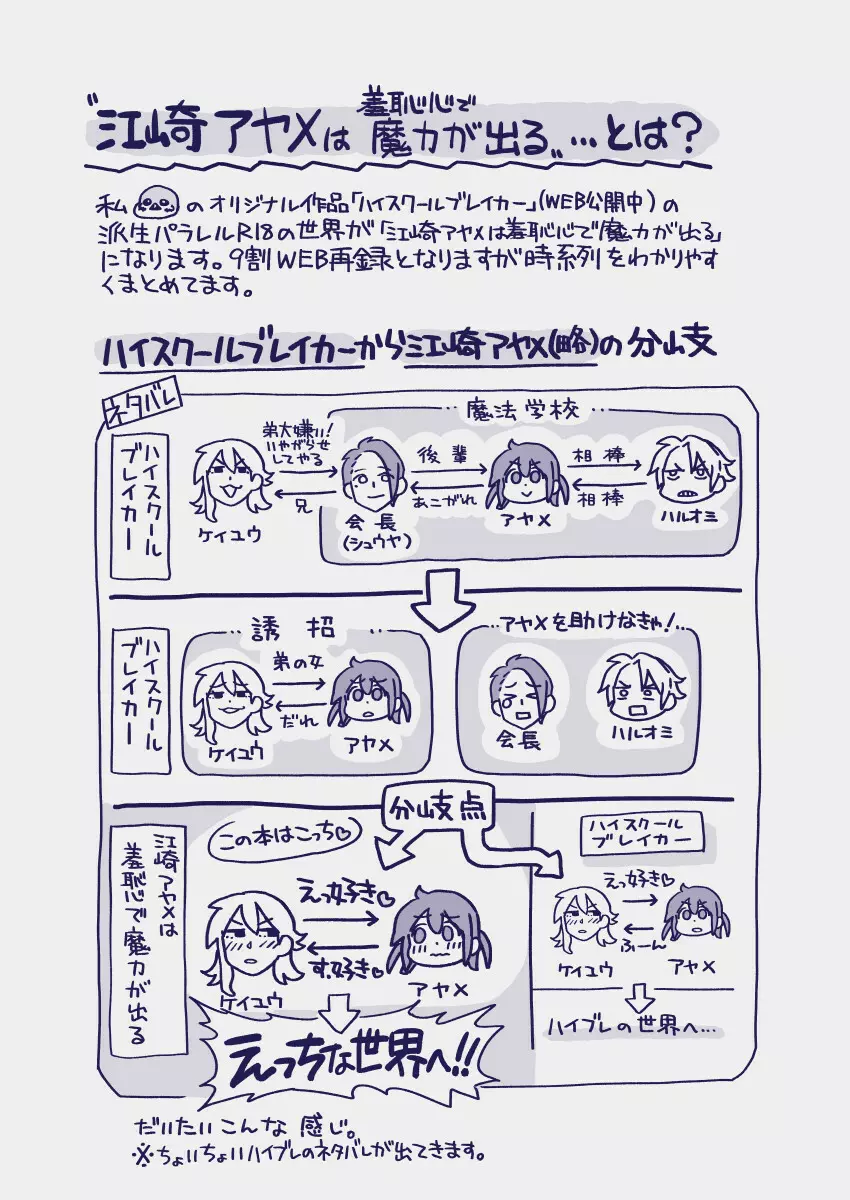 〝江崎アヤメは羞恥心で魔力が出る〟…とは？
私のオリジナル作品「ハイスクールブレイカー」(WEB公開中)の
派生パラレルR18の世界が「江崎アヤメは羞恥心で魔力が出る」
になります。9割WEB再録となりますが時系列をわかりやす
くまとめてます。
ハイスクールブレイカーから江崎アヤメ(略)の分岐
ネタバレ
ハイスクール
ブレイカー
魔法学校
弟大嫌い!
いやがらせ
してやる
兄
後輩
あこがれ
相棒
相棒
ケイユウ
会長
(シュウヤ)
アヤメ
ハルオミ
ハイスクール
ブレイカー
誘招
弟の女
だれ
ケイユウ
アヤメ
アヤメを助けなきゃ!
会長
ハルオミ
分岐点
江崎アヤメは
羞恥心で魔力が出る
この本はこっち♡
えっ好き♡
す、好き♡
ケイユウ
アヤメ
えっちな世界へ!!
ハイスクール
ブレイカー
えっ好き♡
ふーん
ケイユウ
アヤメ
ハイブレの世界へ…
だいたいこんな感じ。
※ちょいちょいハイブレのネタバレが出てきます。